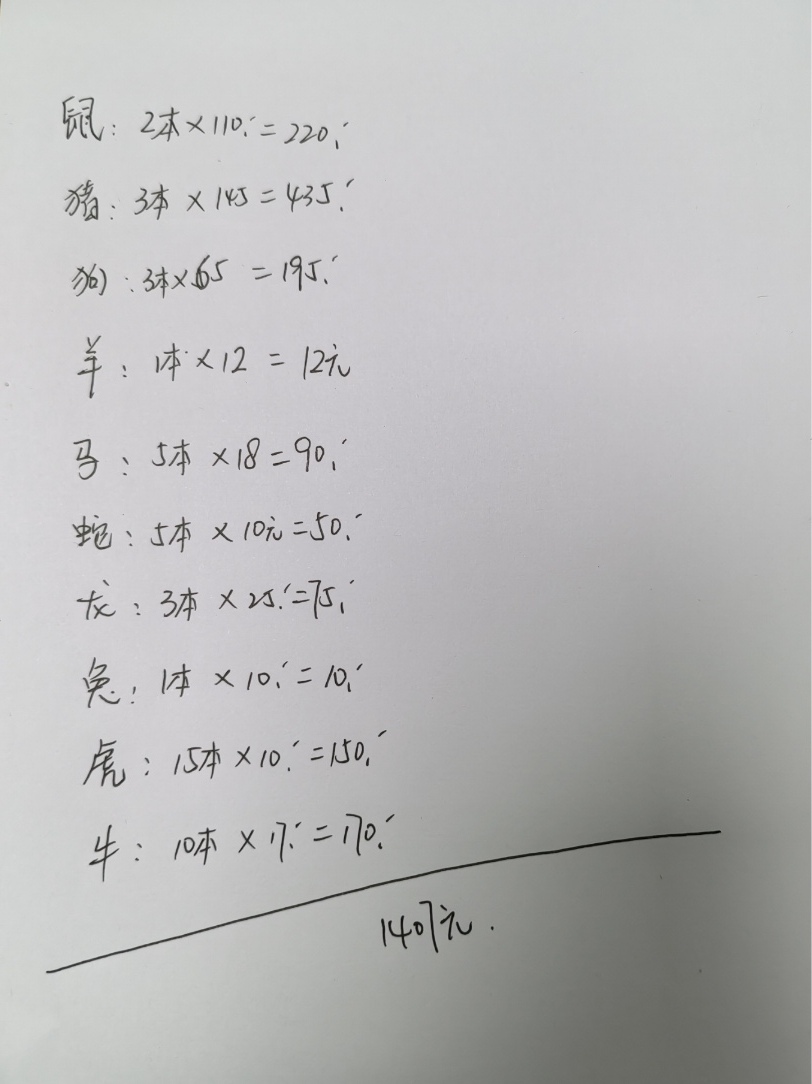 鼠：2本×110.′=220.′
猪：3本×145=435.′
狗：3本×65=195.′
羊：1本×12=12元
马：5本×18=90.′
蛇：5本×10元=50.′
龙：3本×25.′=75.′
兔：1本×10.′=10.′
虎：15本×10.′=150.′
牛：10本×17.′=170.′
1407元.